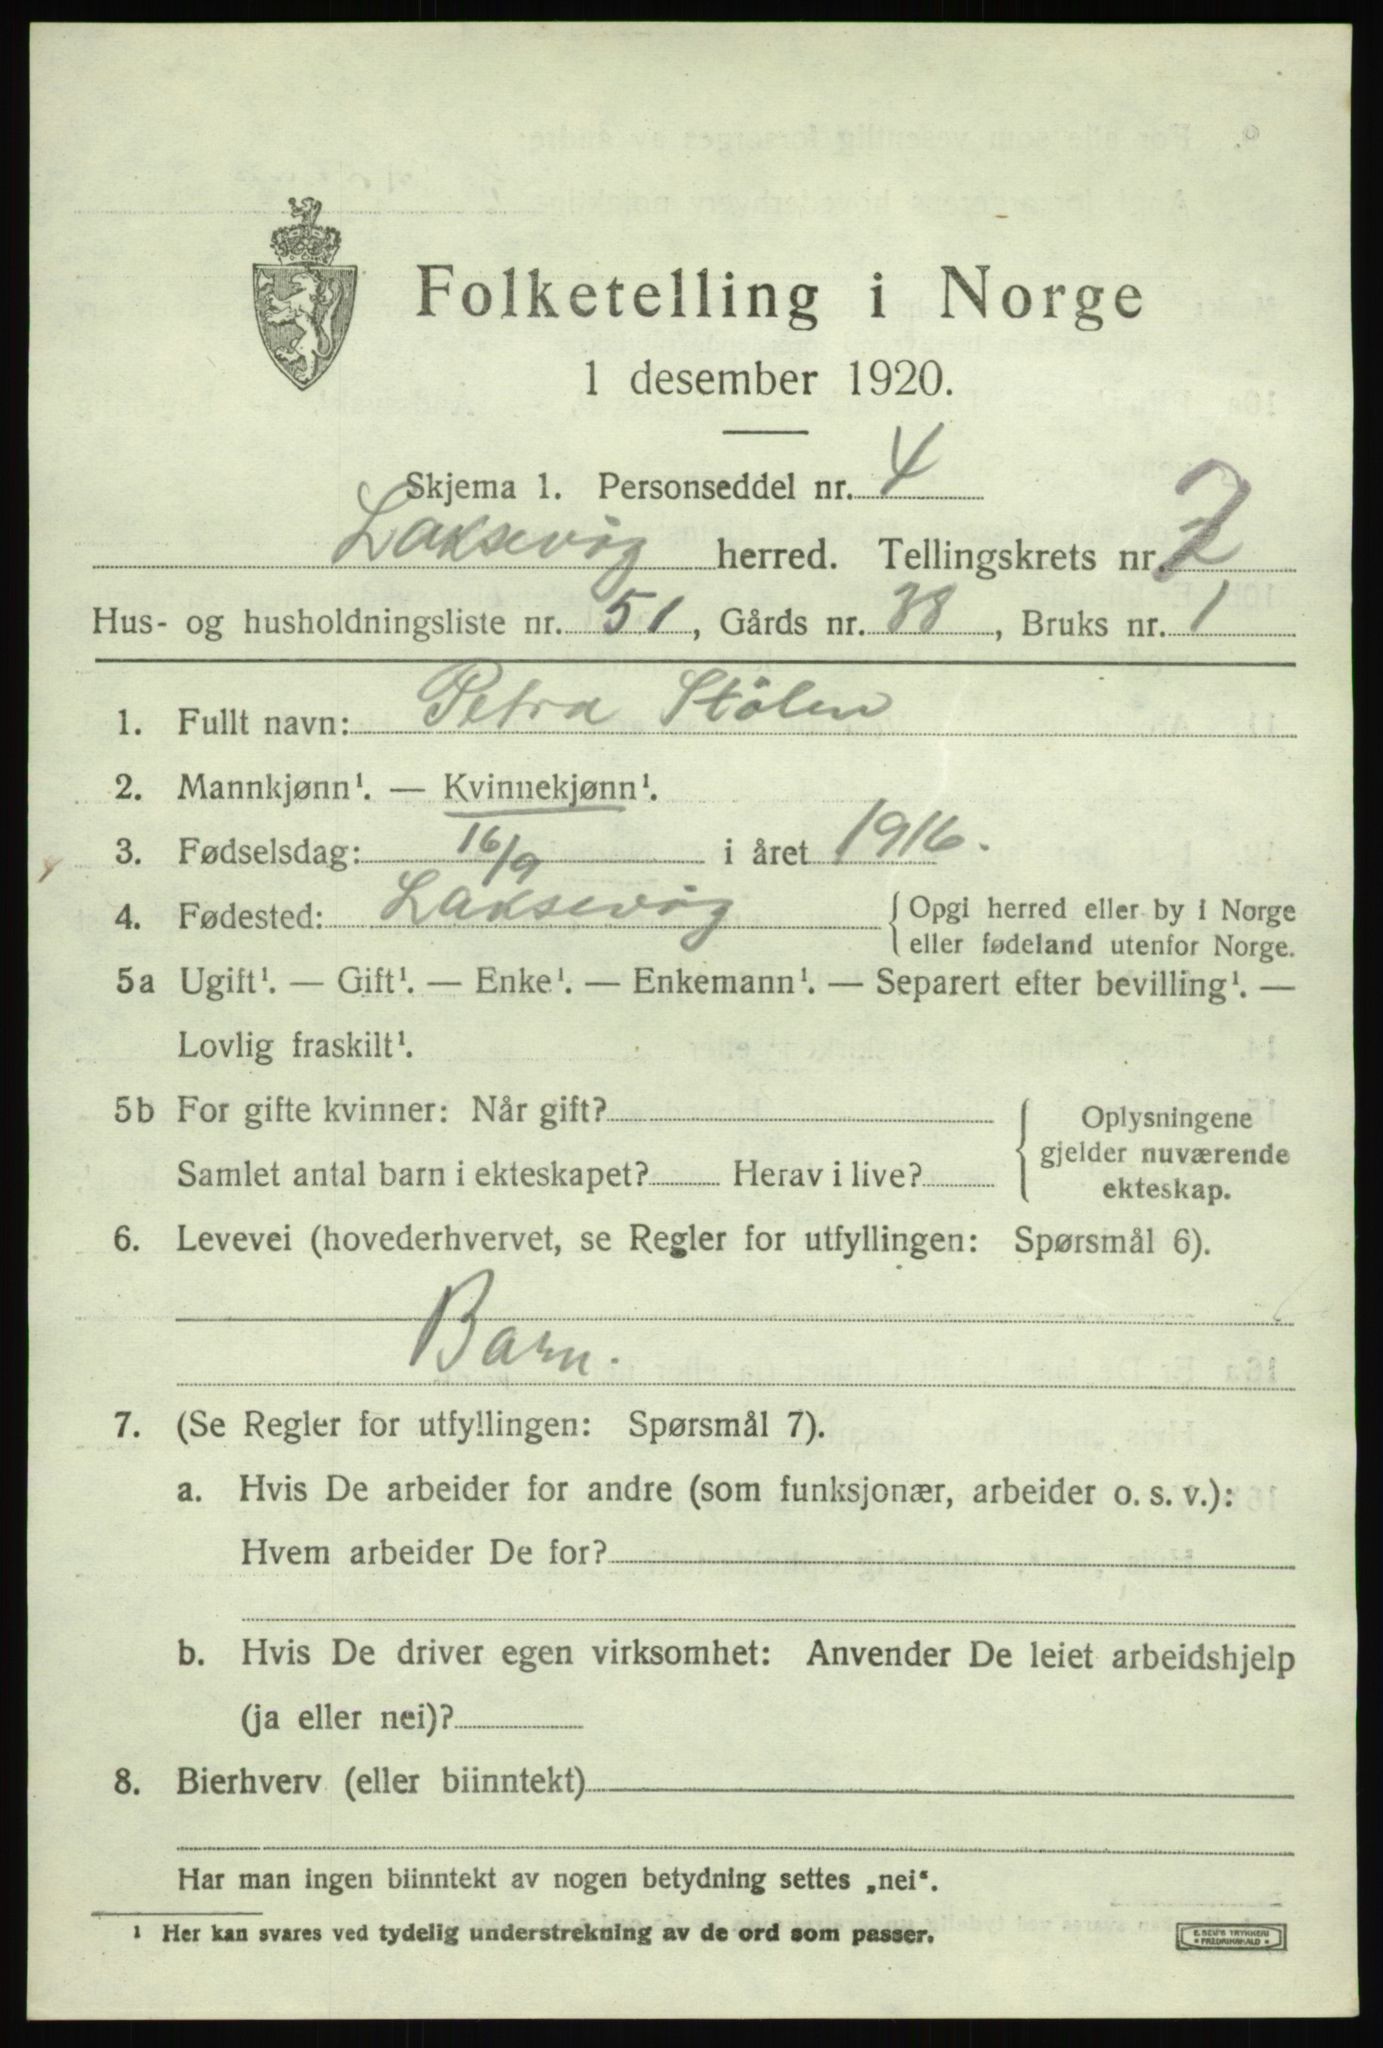 Folketelling i Norge
1 desember 1920.
Skjema 1. Personseddel nr. 4
Laksevøg herred. Tellingskrets nr. 7
Hus- og husholdningsliste nr. 51, Gårds nr. 38, Bruks nr. 1
1. Fullt navn: Petra Stölen
2. Mannkjønn¹. — Kvinnekjønn¹.
3. Fødselsdag: 16/9 i året 1916.
4. Fødested: Laksevøg { Opgi herred eller by i Norge
eller fødeland utenfor Norge.
5a Ugift¹. — Gift¹. — Enke¹. — Enkemann¹. — Separert efter bevilling¹. —
Lovlig fraskilt¹.
5b For gifte kvinner: Når gift?
Samlet antal barn i ekteskapet? Herav i live?
{ Oplysningene
gjelder nuværende
ekteskap.
6. Levevei (hovederhvervet, se Regler for utfyllingen: Spørsmål 6).
Barn.
7. (Se Regler for utfyllingen: Spørsmål 7).
a. Hvis De arbeider for andre (som funksjonær, arbeider o. s. v.):
Hvem arbeider De for?
b. Hvis De driver egen virksomhet: Anvender De leiet arbeidshjelp
(ja eller nei)?
8. Bierhverv (eller biinntekt)
Har man ingen biinntekt av nogen betydning settes „nei“.
¹ Her kan svares ved tydelig understrekning av de ord som passer.